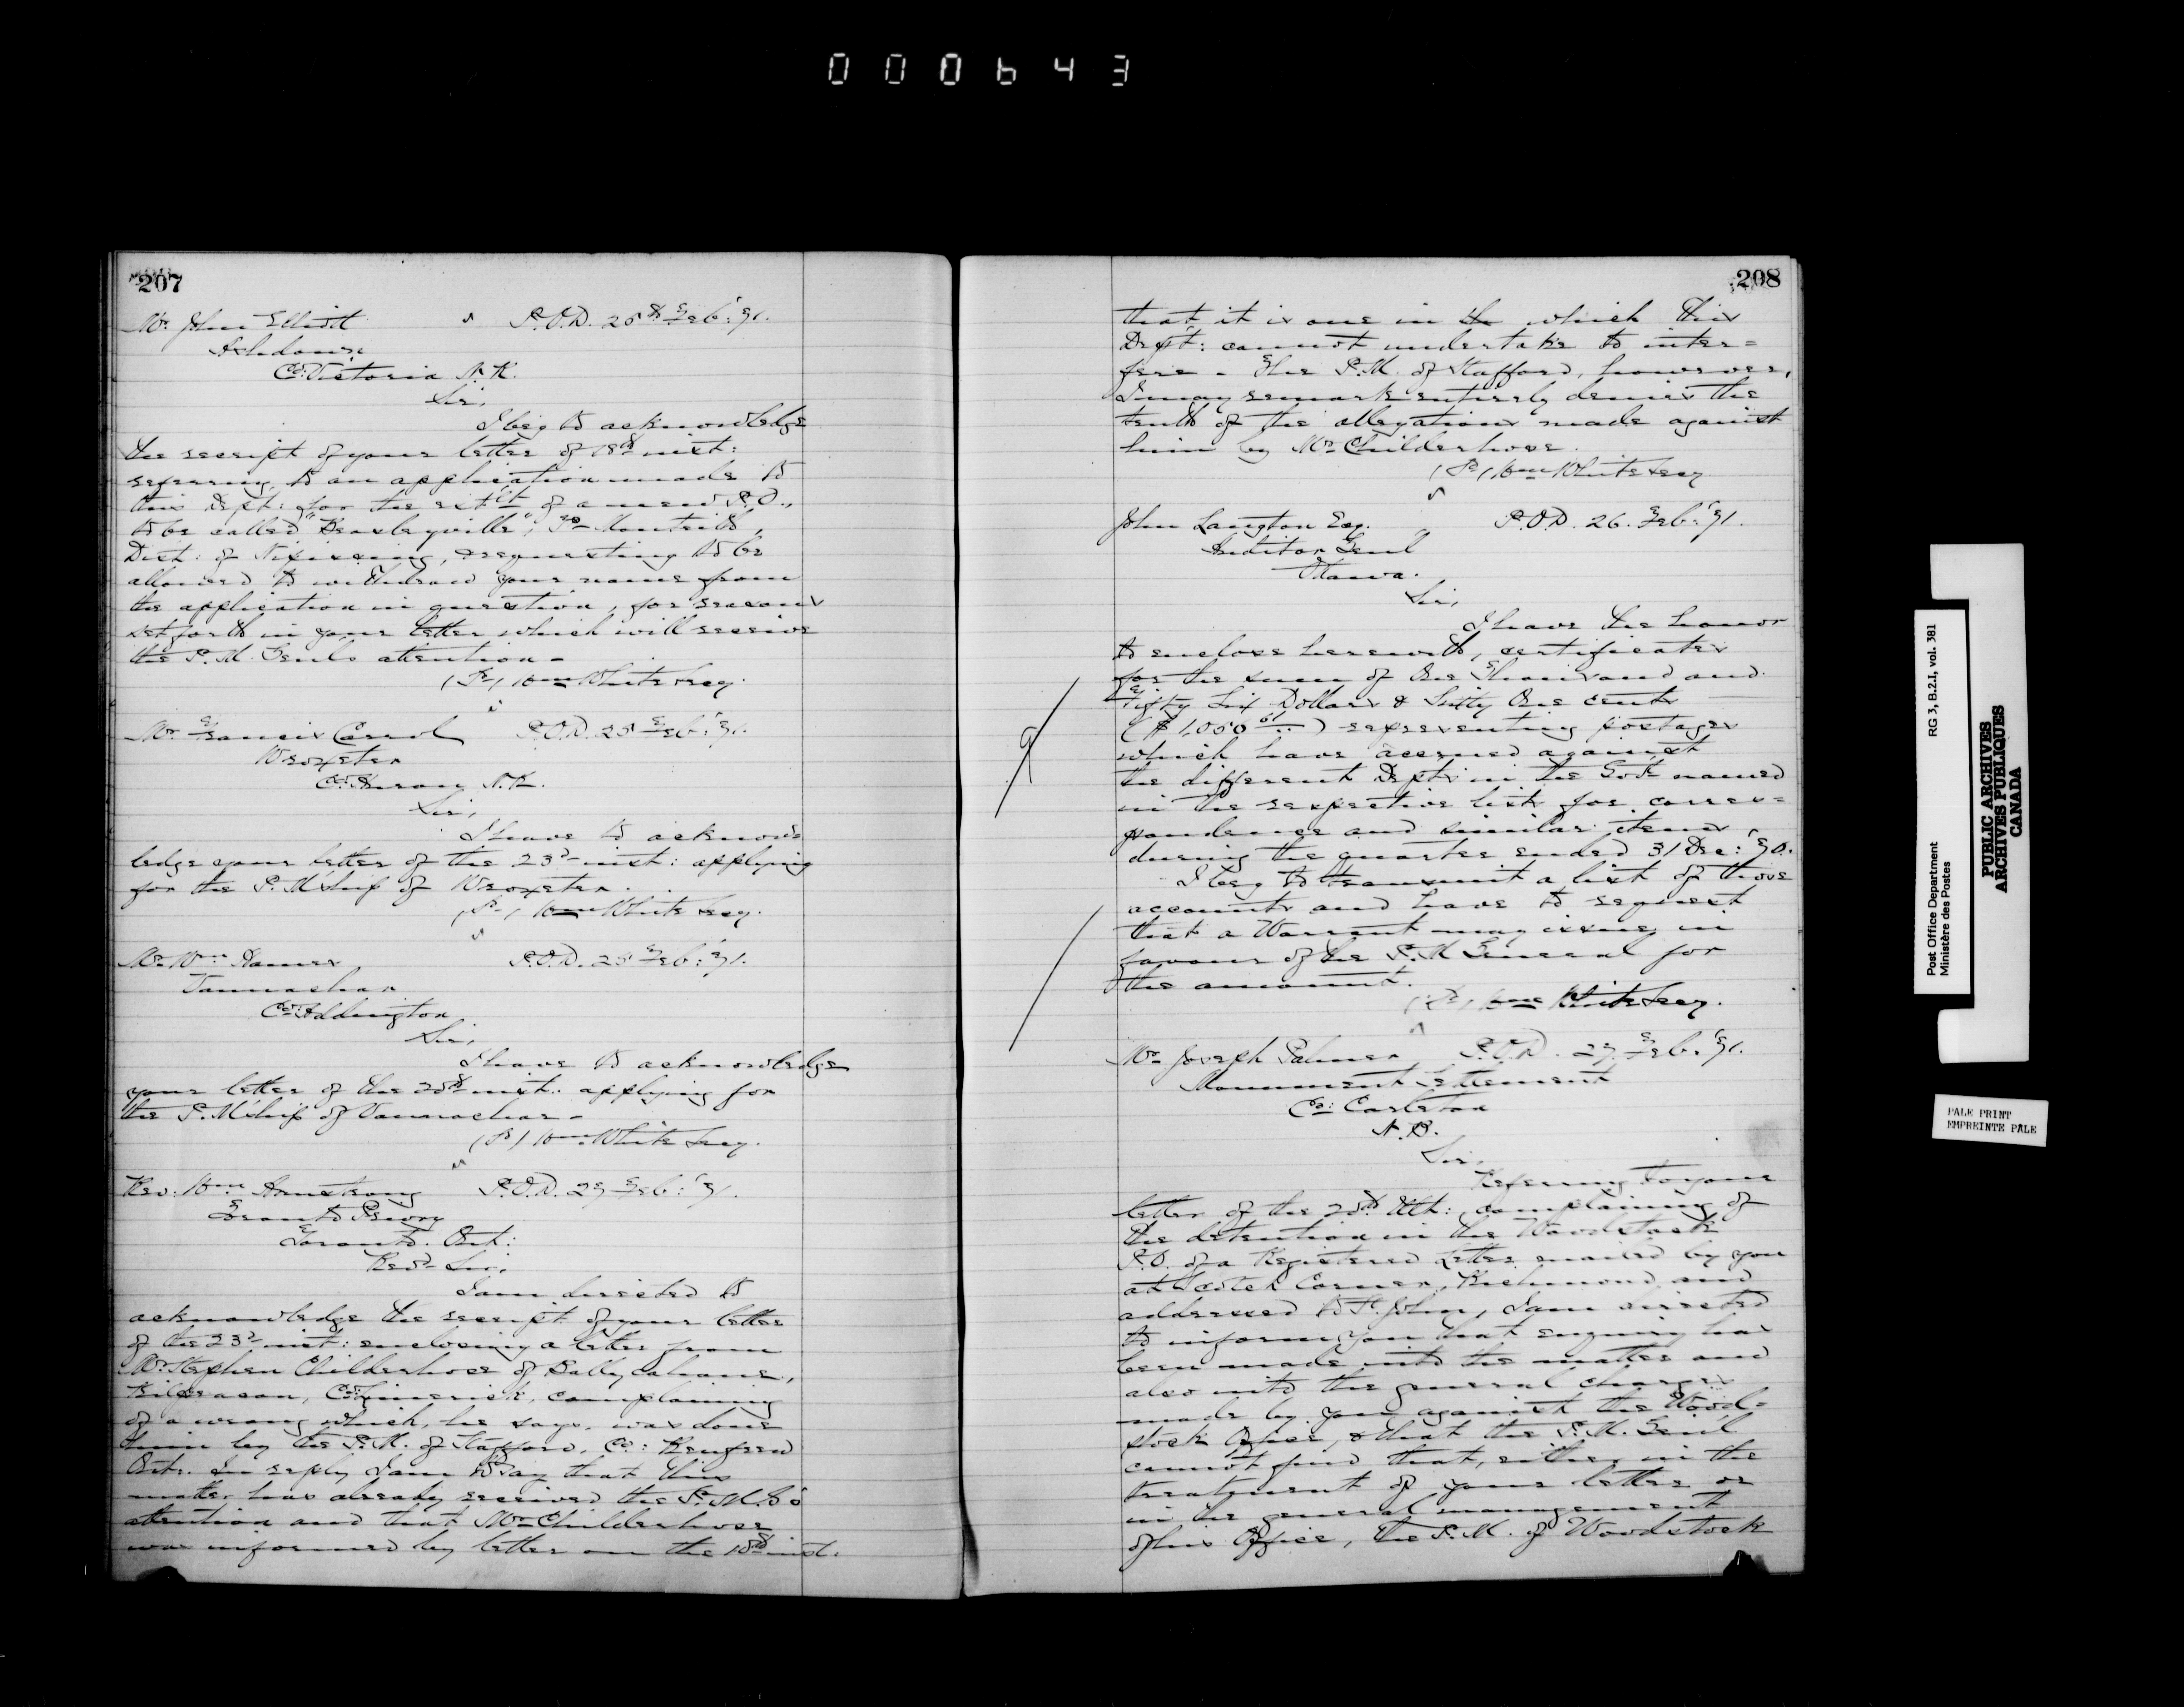 000643
207
Mr. John Elliott P.O.D. 25th Feb: '71.
Ashdown,
Co: Victoria N.R.
Sir,
I beg to acknowledge
the receipt of your letter of 18th inst:
referring to an application made to
this Dept: for the est't of a new P.O.,
to be called "Beasleyville", Tp Monteith,
Dist: of Nipissing, & requesting to be
allowed to withdraw your name from
the application in question, for reasons
set forth in your letter which will receive
the P.M. Genl's attention -
(Sd) Wm White Secy.
Mr. Francis Carrol P.O.D. 25 Feb: '71.
Wroxeter
Co: Huron N.R.
Sir,
I have to acknow
ledge your letter of the 23d inst: applying
for the P.M'ship of Wroxeter.
(Sd) Wm White Secy.
Mr. Wm: Hames P.O.D. 25 Feb: '71.
Vannachar
Co: Addington
Sir,
I have to acknowledge
your letter of the 20th inst: applying for
the P.M'ship of Vannachar -
(Sd) Wm White Secy.
Rev: Wm Armstrong P.O.D. 27 Feb: '71.
Toronto Priory
Toronto. Ont:
Revd Sir,
I am directed to
acknowledge the receipt of your letter
of the 23d inst: enclosing a letter from
Mr. Stephen Childerhose of Ballycahane,
Co: Limerick, complaining
of a wrong which, he says, was done
him by the P.M. of Stafford, Co: Renfrew
Ont. In reply I am to say that this
matter has already received the P.M.G's
attention and that Mr Childerhose
was informed by letter on the 18th inst.
208
that it is one in the which this
Dept: cannot undertake to inter=
fere - The P.M. of Stafford, however,
I may remark entirely denies the
truth of the allegations made against
him by Mr Childerhose.
(Sd) Wm White Secy
John Langton Esq. P.O.D. 26. Feb: '71.
Auditor Genl
Ottawa.
Sir,
I have the honor
to enclose herewith, certificates
for the sum of One Thousand and
Fifty Six Dollars & Sixty One cents
($1,056 61) representing postages
which have accrued against
the different Depts in the Govt. named
in the respective lists for corres=
pondence and similar items
during the quarter ended 31 Dec: '70.
I beg to transmit a list of those
accounts and have to request
that a Warrant may issue in
favour of the P.M. General for
the amount.
(Sd) Wm White Secy.
Mr Joseph Palmer P.O.D. 27 Feb: '71.
Monument Settlement
Co: Carleton
N.B.
Sir,
Referring to your
letter of the 25th Ult: complaining of
the detention in the Woodstock
P.O. of a Registered Letter mailed by you
at Scotch Corner, Richmond and
addressed to St. John, I am directed
to inform you that enquiry has
been made into the matter and
also into the general charges
made by you against the Wood=
stock Office, & that the P.M. Gen'l
cannot find that, either in the
treatment of your letter or
in the general management
of his Office, the P.M. of Woodstock
Post Office Department
Ministère des Postes
RG 3, B.2.I, vol. 381
PUBLIC ARCHIVES
ARCHIVES PUBLIQUES
CANADA
PALE PRINT
EMPREINTE PALE